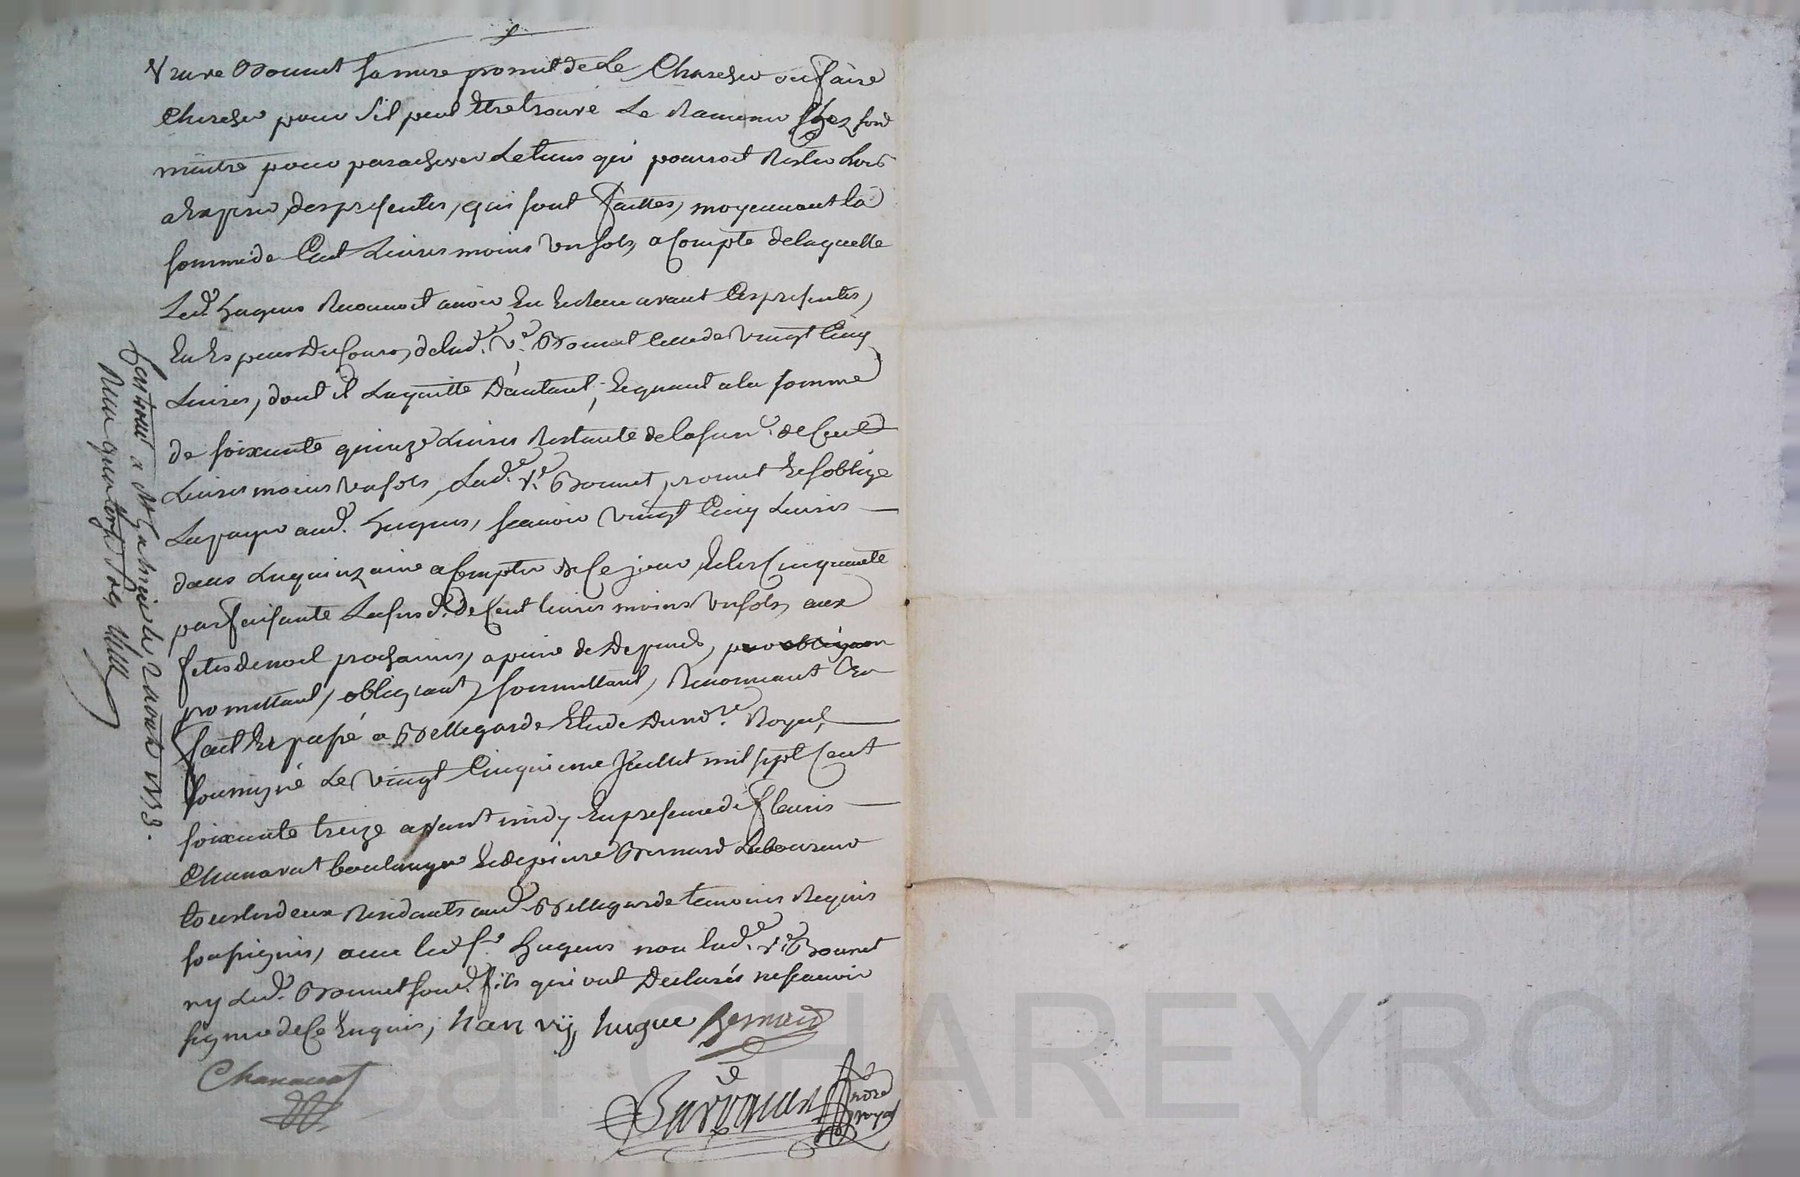 veuve Bonnet sa mere promet de le Chercher ou faire
Chercher pour s'il peut Etre trouvé Le Ramener Chez sond
maitre pour parachever Letems qui pourroit Rester Lors
a Expirer, des presentes, qui sont faittes, moyennant la
somme de Cent Livres moins un sols, a Compte de laquelle
Led. hugues Reconnoit avoir Eu Et Receu avant Ces presentes,
En Especes du Cours, de lad.e v.e Bonnet Celle de vingt Cinq
Livres, dont il La quitte D'autant, Et quant a la somme
de soixante quinze Livres Restante de la sus.e de Cent
Livres moins un sols, Lad.e v.e Bonnet, promet Et s'oblige
La payer aud. hugues, scavoir vingt Cinq Livres
dans La quinzaine a Compter de Ce jour Et les Cinquante
parfaisante La susd. de Cent livres moins un sols, aux
fetes de noel prochaines, a peine de Depends,
promettant, obligeant, soumettant, Renonceant &a
fait Et passé a Bellegarde Etude Du no.re Royal,
soussigné Le vingt Cinquieme Juillet mil sept Cent
soixante treize avant midy En presence de fleuris
Chanavat boulanger Et de pierre Bernard Laboureur
tous les deux Residants aud. Bellegarde temoins Requis
soussignés, avec led. s.r hugues non lad.e v.e Bonnet
ny Led. Bonnet sond. fils qui ont Declarés ne scavoir
signer de Ce Enquis, hugue Bernard
Chanavat
no.re
royal
Controllé a St Galmier le 2 aout 1773.
Recu quatorze sols
CHAREYRON